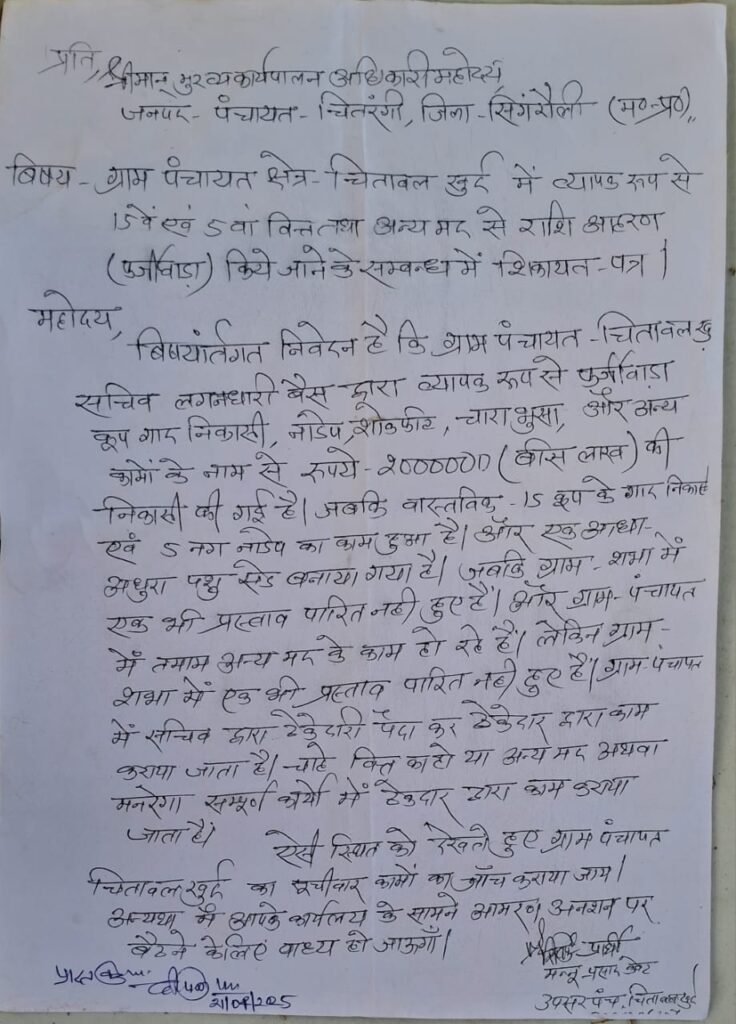 प्रति,
श्रीमान् मुख्यकार्यपालन अधिकारी महोदय,
जनपद - पंचायत - चितरंगी, जिला - सिंगरौली (म०-प्र०),,
बिषय - ग्राम पंचायत क्षेत्र - चितावल खुर्द में व्यापक रूप से
15वें एवं 5 वां वित्त तथा अन्य मद से राशि आहरण
(फर्जीवाड़ा) किये जाने के सम्बन्ध में शिकायत - पत्र |
महोदय,
बिषयांर्तगत निवेदन है कि ग्राम पंचायत - चितावल खु
सचिव लगनधारी बैस द्वारा व्यापक रूप से फर्जीवाड़ा
कूप गाद निकासी, नाडेप, शोकपिट, चारा भुसा, और अन्य
कामों के नाम से रूपये - 2000000 (बीस लाख) की
निकासी की गई है | जबकि वास्तविक - 15 कूप के गाद निकासी
एवं 5 नग नाडेप का काम हुआ है | और एक आधा -
अधुरा पशु सेड बनाया गया है | जबकि ग्राम - शभा में
एक भी प्रस्ताव पारित नही हुए है | और ग्राम - पंचायत
में तमाम अन्य मद के काम हो रहे हैं | लेकिन ग्राम -
शभा में एक भी प्रस्ताव पारित नही हुए हैं | ग्राम - पंचायत
में सचिव द्वारा ठेकेदारी पैदा कर ठेकेदार द्वारा काम
कराया जाता है | चाहे वित्त का हो या अन्य मद अथवा
मनरेगा सम्पूर्ण कार्यो में ठेकदार द्वारा काम कराया
जाता है |
ऐसी स्थित को देखते हुए ग्राम पंचायत
चितावल खुर्द का सूचीवार कामों का जाँच कराया जाय |
अन्यथा मैं आपके कार्यलय के सामने आमरण अनशन पर
बैठने के लिए वाध्य हो जाऊगाँ |
प्रार्थी
उपसरपंच, चितावल खुर्द